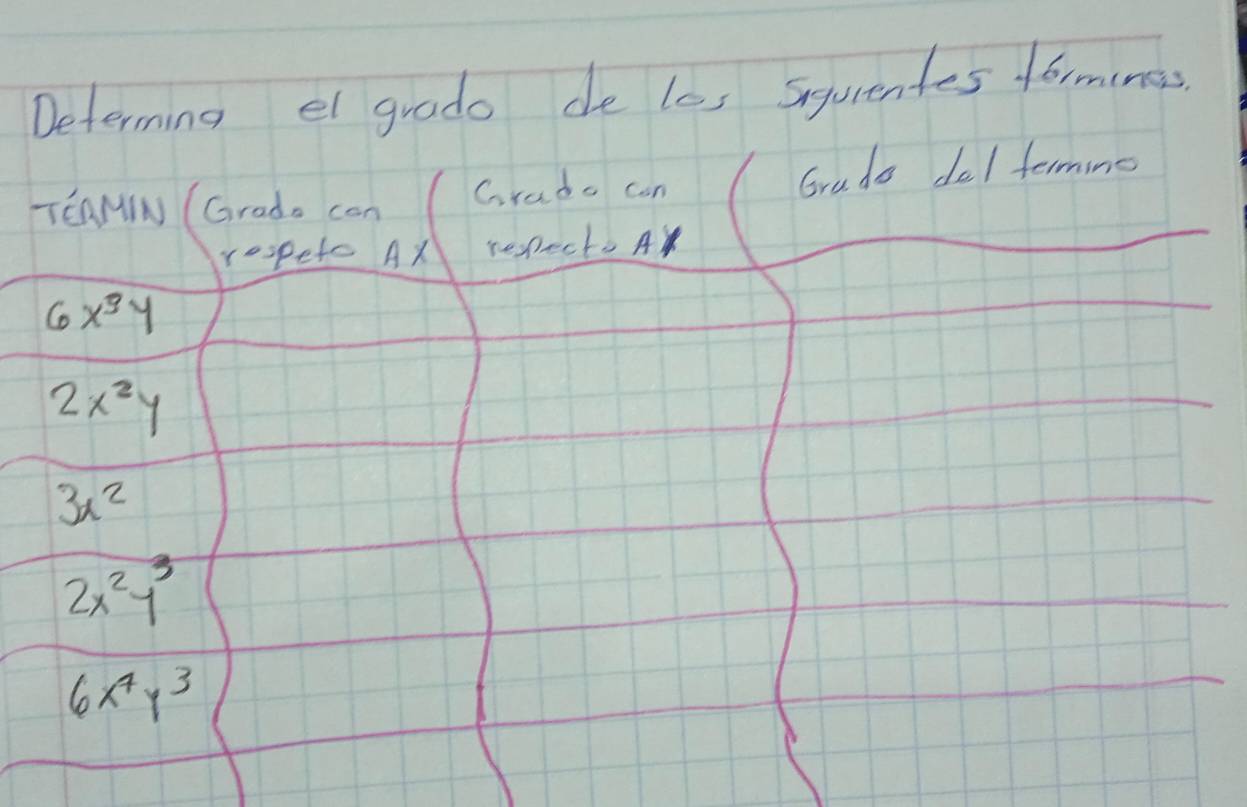 Determina el grado de los siguientes términos.
TÉRMIN Grado con respeto AX Grado con respecto AY Grado del termino
6x³y
2x²y
3x²
2x²y³
6x⁷y³